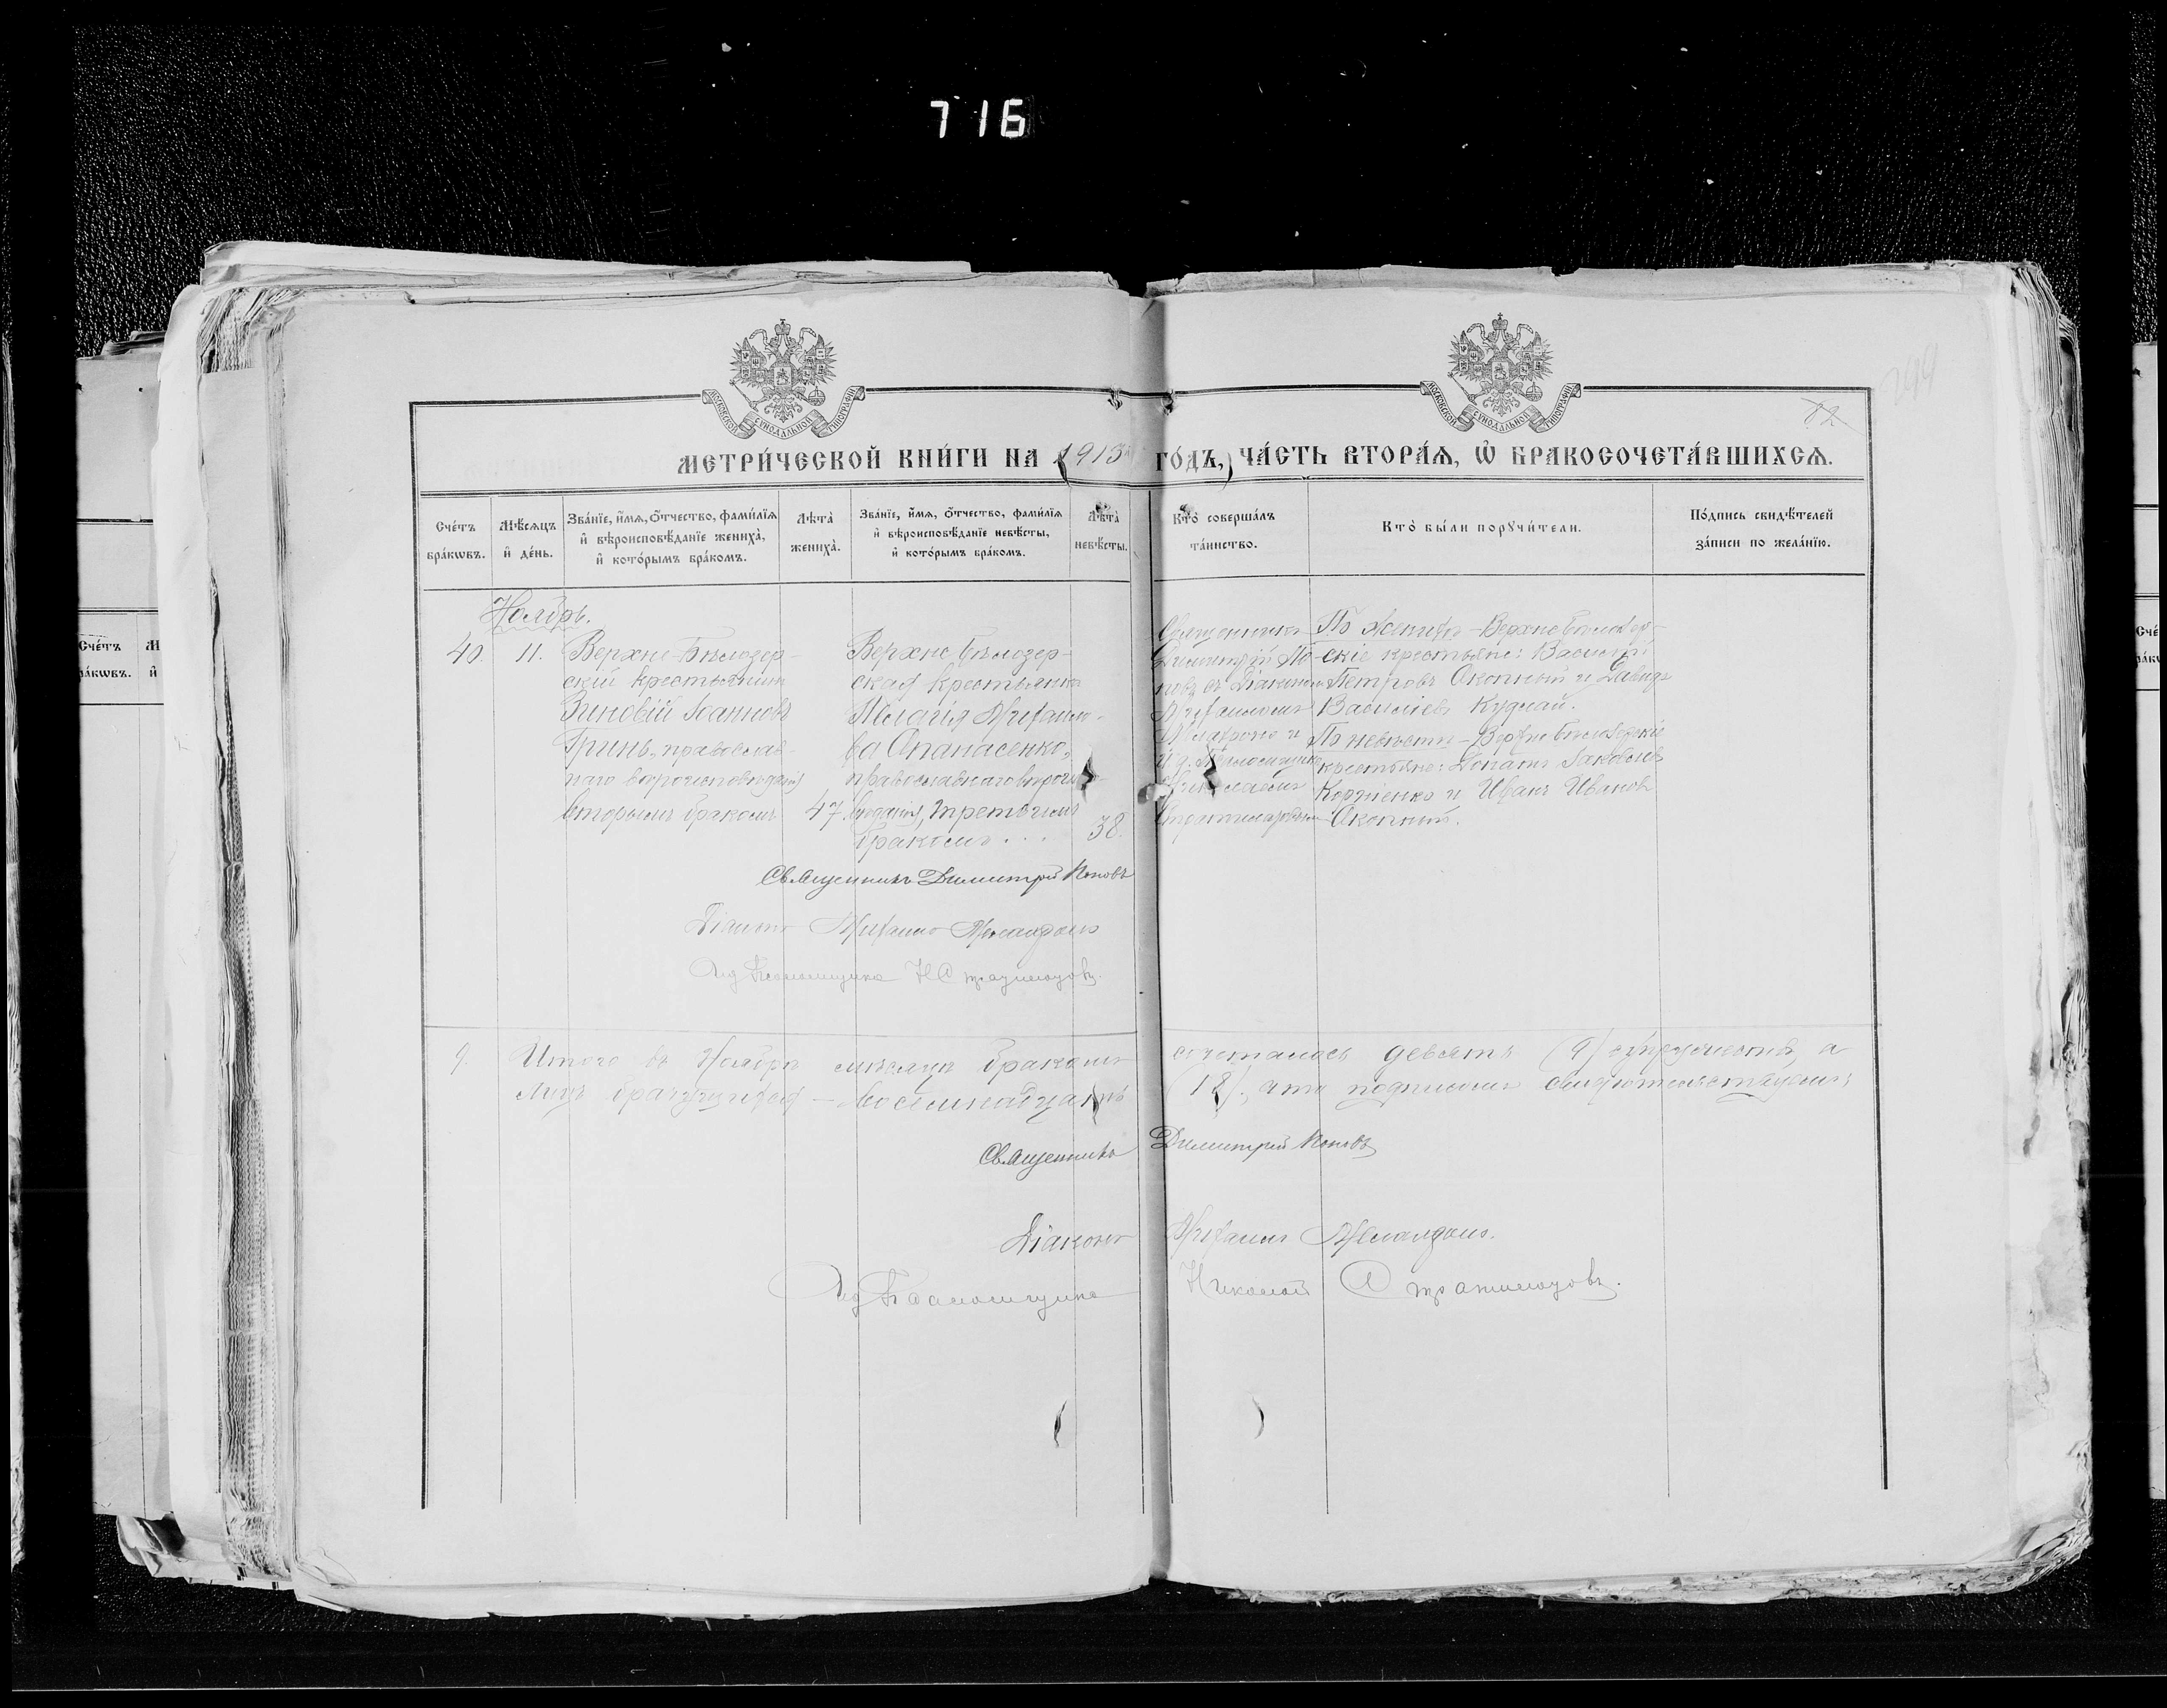 716
МОСКОВСКОЙ СУНОДАЛЬНОЙ ТИПОГРАФІИ
МОСКОВСКОЙ СУНОДАЛЬНОЙ ТИПОГРАФІИ
82
МЕТРИ́ЧЕСКОЙ КНИ́ГИ НА 1913 ГО́ДЪ, ЧА́СТЬ ВТОРА́Ѧ, Ѡ҆ БРАКОСОЧЕТА́ВШИХСѦ.
Сче́тъ бра́кѡвъ.
Мѣ́сѧцъ и҆ де́нь.
Зва́нїе, и҆́мѧ, ѻ҆́тчество, фами́лїѧ и҆ вѣроисповѣ́данїе жениха̀, и҆ кото́рымъ бра́комъ.
Лѣта̀ жениха̀.
Зва́нїе, и҆́мѧ, ѻ҆́тчество, фами́лїѧ и҆ вѣроисповѣ́данїе невѣ́сты, и҆ кото́рымъ бра́комъ.
Лѣта̀ невѣ́сты.
Кто̀ соверша́лъ та́инство.
Кто̀ бы́ли порꙋчи́тели.
По́дпись свидѣ́телей за́писи по жела́нїю.
Ноябрь.
40. 11.
Верхне-Бѣлозер-
скій крестьянинъ
Зиновій Іоанновъ
Гринь, православ-
наго вѣроисповѣданія
вторымъ бракомъ
47.
Верхне Бѣлозер-
ская крестьянка
Пелагія
ва Апанасенко,
православнаго вѣроис-
повѣданія, третьимъ
бракомъ . . .
38.
Священникъ
Димитрій По-
повъ съ Діакономъ
и
и. д. Псаломщика
Николаемъ
По женихѣ - Верхнебѣлозер-
скіе крестьяне: Василій
Петровъ Окопный и Давидъ
Васильевъ Кудлай.
По невѣстѣ - Верхнебѣлозерскіе
крестьяне: Іаковлевъ
Корніенко и Иванъ Ивановъ
Окопный.
Священникъ Димитрій Поповъ
Діаконъ
Ид Псаломщика Н
9. Итого въ Ноябрѣ мѣсяцѣ бракомъ сочеталось девять (9) супружествъ, а
лицъ брачущихся - восемнадцать (18), что подписомъ свидѣтельствуемъ:
Священникъ Димитрій Поповъ
Діаконъ
Ид Псаломщика Николай
Сче́тъ